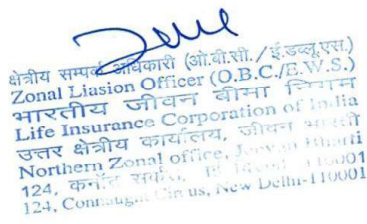 क्षेत्रीय सम्पर्क अधिकारी (ओ.बी.सी./ई.डब्लू.एस.)
Zonal Liasion Officer (O.B.C./E.W.S.)
भारतीय जीवन बीमा निगम
Life Insurance Corporation of India
उत्तर क्षेत्रीय कार्यालय, जीवन भारती
Northern Zonal office, Jeevan Bharti
124, कनॉट सर्कस, 110001
124, Connaught Circus, New Delhi-110001